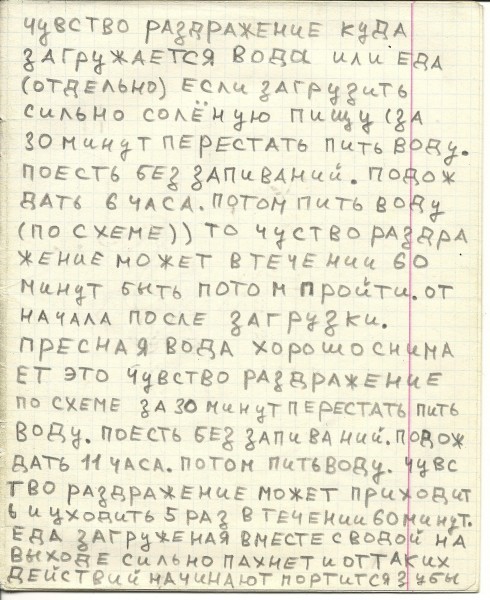 чуВСТВО РАЗДРАЖЕНИЕ КУДА
ЗАГРУЖАЕТСЯ ВОДА ИЛИ ЕДА
(ОТДЕЛЬНО) ЕСЛИ ЗАГРУЗИТЬ
СИЛЬНО СОЛЁНУЮ ПИЩУ (ЗА
30 МИНУТ ПЕРЕСТАТЬ ПИТЬ ВОДУ.
ПОЕСТЬ БЕЗ ЗАПИВАНИЙ. ПОДОЖ
ДАТЬ 6 ЧАСА. ПОТОМ ПИТЬ ВОДУ
(ПО СХЕМЕ)) ТО ЧУСТВО РАЗДРА
ЖЕНИЕ МОЖЕТ В ТЕЧЕНИИ 60
МИНУТ БЫТЬ ПОТОМ ПРОЙТИ. ОТ
НАЧАЛА ПОСЛЕ ЗАГРУЗКИ.
ПРЕСНАЯ ВОДА ХОРОШО СНИМА
ЕТ ЭТО ЧУВСТВО РАЗДРАЖЕНИЕ
ПО СХЕМЕ ЗА 30 МИНУТ ПЕРЕСТАТЬ ПИТЬ
ВОДУ. ПОЕСТЬ БЕЗ ЗАПИВАНИЙ. ПОДОЖ
ДАТЬ 11 ЧАСА. ПОТОМ ПИТЬ ВОДУ. ЧУВС
ТВО РАЗДРАЖЕНИЕ МОЖЕТ ПРИХОДИТ
Ь И УХОДИТЬ 5 РАЗ В ТЕЧЕНИИ 60 МИНУТ.
ЕДА ЗАГРУЖЕНАЯ ВМЕСТЕ С ВОДОЙ НА
ВЫХОДЕ СИЛЬНО ПАХНЕТ И ОТ ТАКИХ
ДЕЙСТВИЙ НАЧИНАЮТ ПОРТИТСЯ ЗУБЫ